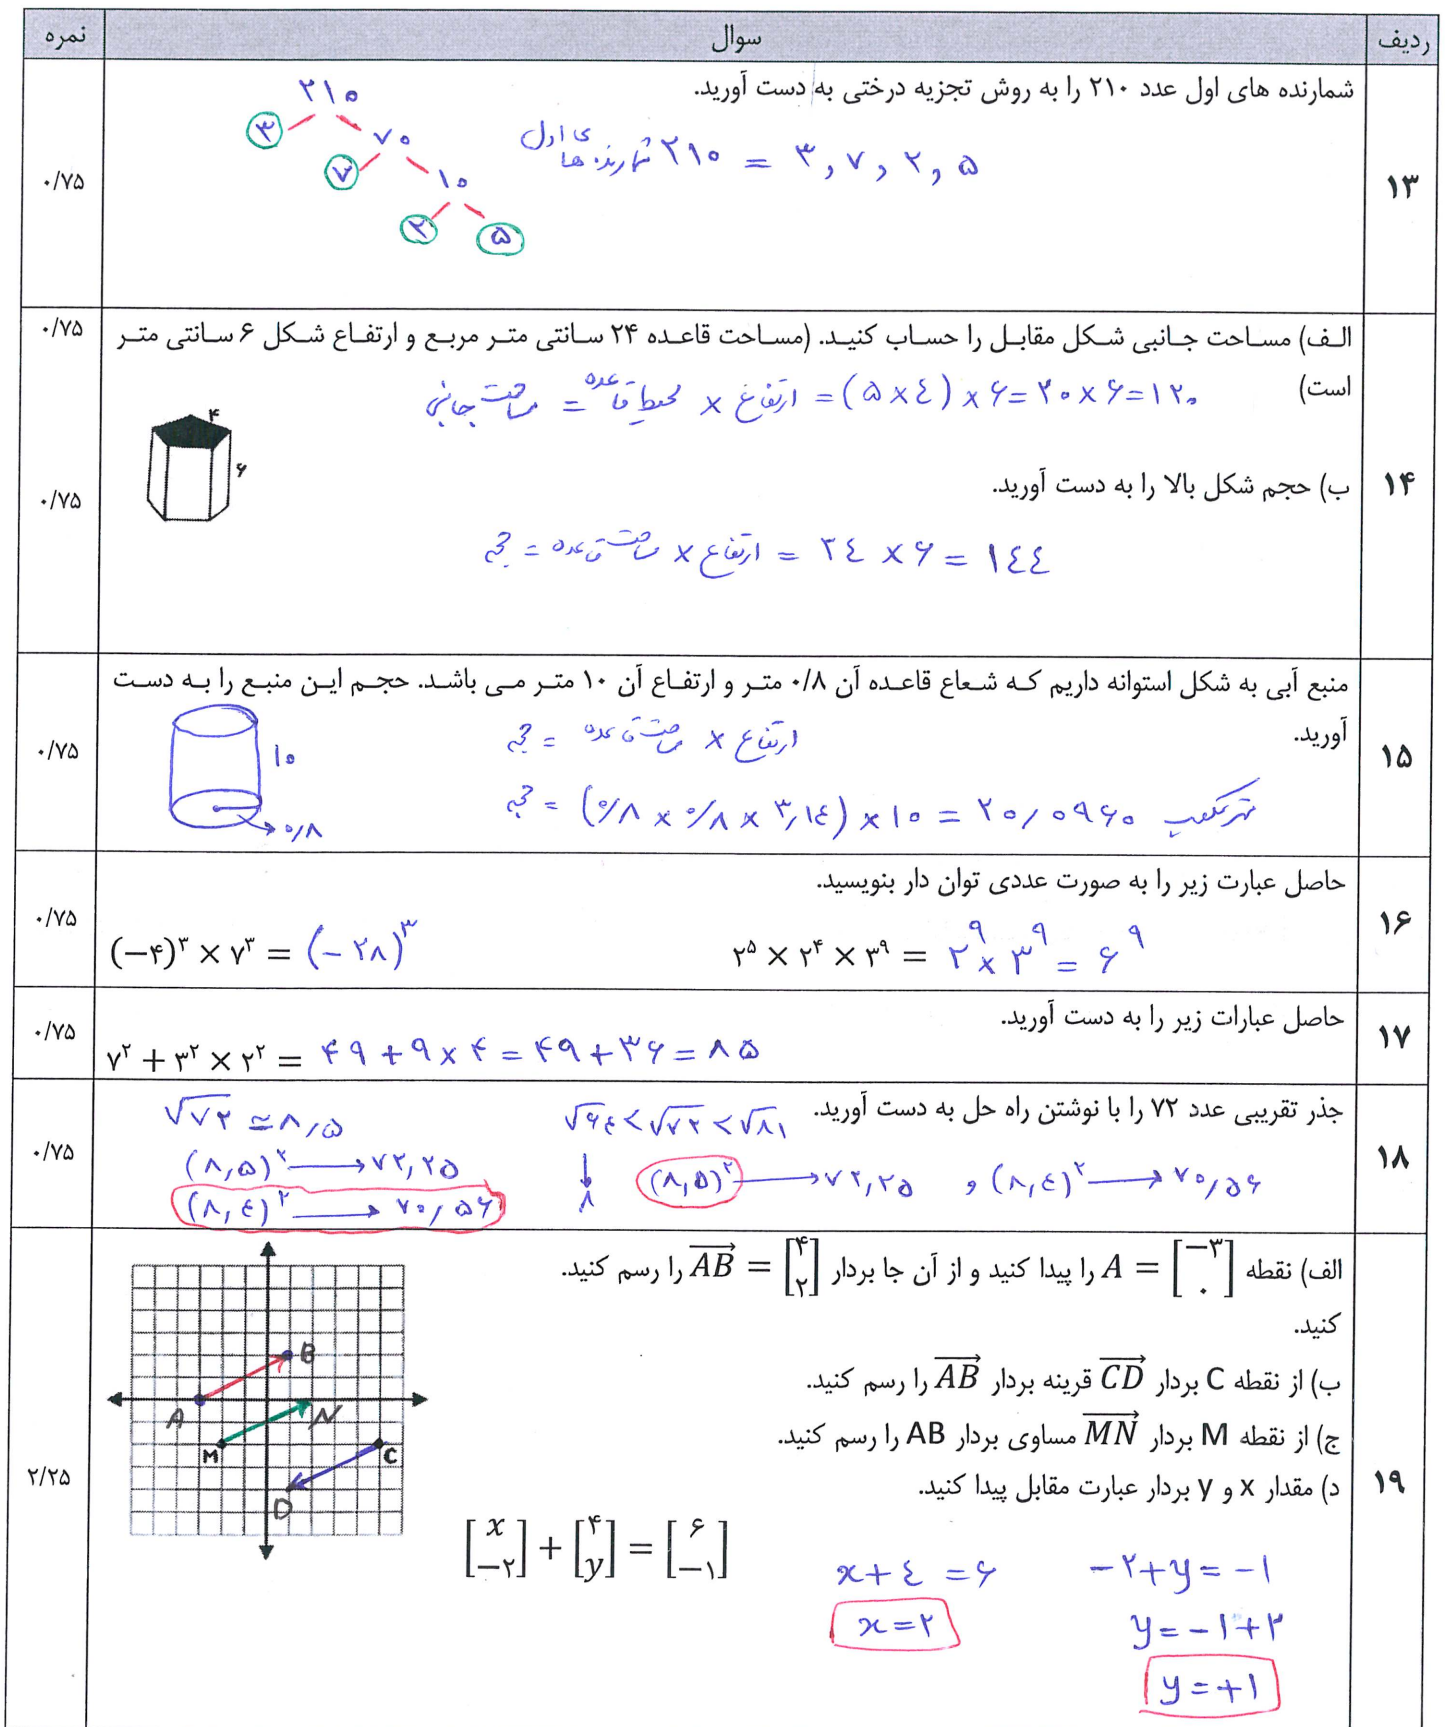 ردیف سوال نمره
۱۳ شمارنده های اول عدد ۲۱۰ را به روش تجزیه درختی به دست آورید. ۰/۷۵
۲۱۰
۳ ۷۰
۷ ۱۰
۲ ۵
شمارنده های اول ۲۱۰ = ۳ , ۷ , ۲ , ۵
۱۴ الف) مساحت جانبی شکل مقابل را حساب کنید. (مساحت قاعده ۲۴ سانتی متر مربع و ارتفاع شکل ۶ سانتی متر ۰/۷۵
است)
مساحت جانبی = محیط قاعده × ارتفاع = (۵×٤) × ۶ = ۲۰ × ۶ = ۱۲۰
۴
۶
ب) حجم شکل بالا را به دست آورید. ۰/۷۵
حجم = مساحت قاعده × ارتفاع = ۲٤ × ۶ = ۱٤٤
۱۵ منبع آبی به شکل استوانه داریم که شعاع قاعده آن ۰/۸ متر و ارتفاع آن ۱۰ متر می باشد. حجم این منبع را به دست ۰/۷۵
آورید.
حجم = مساحت قاعده × ارتفاع
۱۰
۰/۸
حجم = (۰/۸ × ۰/۸ × ۳,۱٤) × ۱۰ = ۲۰/۰۹۶۰ متر مکعب
۱۶ حاصل عبارت زیر را به صورت عددی توان دار بنویسید. ۰/۷۵
۲⁵ × ۲⁴ × ۳⁹ = ۲⁹ × ۳⁹ = ۶⁹
(−۴)³ × ۷³ = (−۲۸)³
۱۷ حاصل عبارات زیر را به دست آورید. ۰/۷۵
۷² + ۳² × ۲² = ۴۹ + ۹ × ۴ = ۴۹ + ۳۶ = ۸۵
۱۸ جذر تقریبی عدد ۷۲ را با نوشتن راه حل به دست آورید. ۰/۷۵
√۶٤ < √۷۲ < √۸۱
√۷۲ ≃ ۸,۵
۸
(۸,۵)² → ۷۲,۲۵ , (۸,٤)² → ۷۰/۵۶
(۸,۵)² → ۷۲,۲۵
(۸,٤)² → ۷۰,۵۶
۱۹ الف) نقطه A = [−۳ ۰] را پیدا کنید و از آن جا بردار AB = [۴ ۲] را رسم کنید. ۲/۲۵
کنید.
ب) از نقطه C بردار CD قرینه بردار AB را رسم کنید.
ج) از نقطه M بردار MN مساوی بردار AB را رسم کنید.
د) مقدار x و y بردار عبارت مقابل پیدا کنید.
A B
M N
C D
[x −۲] + [۴ y] = [۶ −۱]
x + ٤ = ۶
x = ۲
−۲ + y = −۱
y = −۱ + ۲
y = +۱